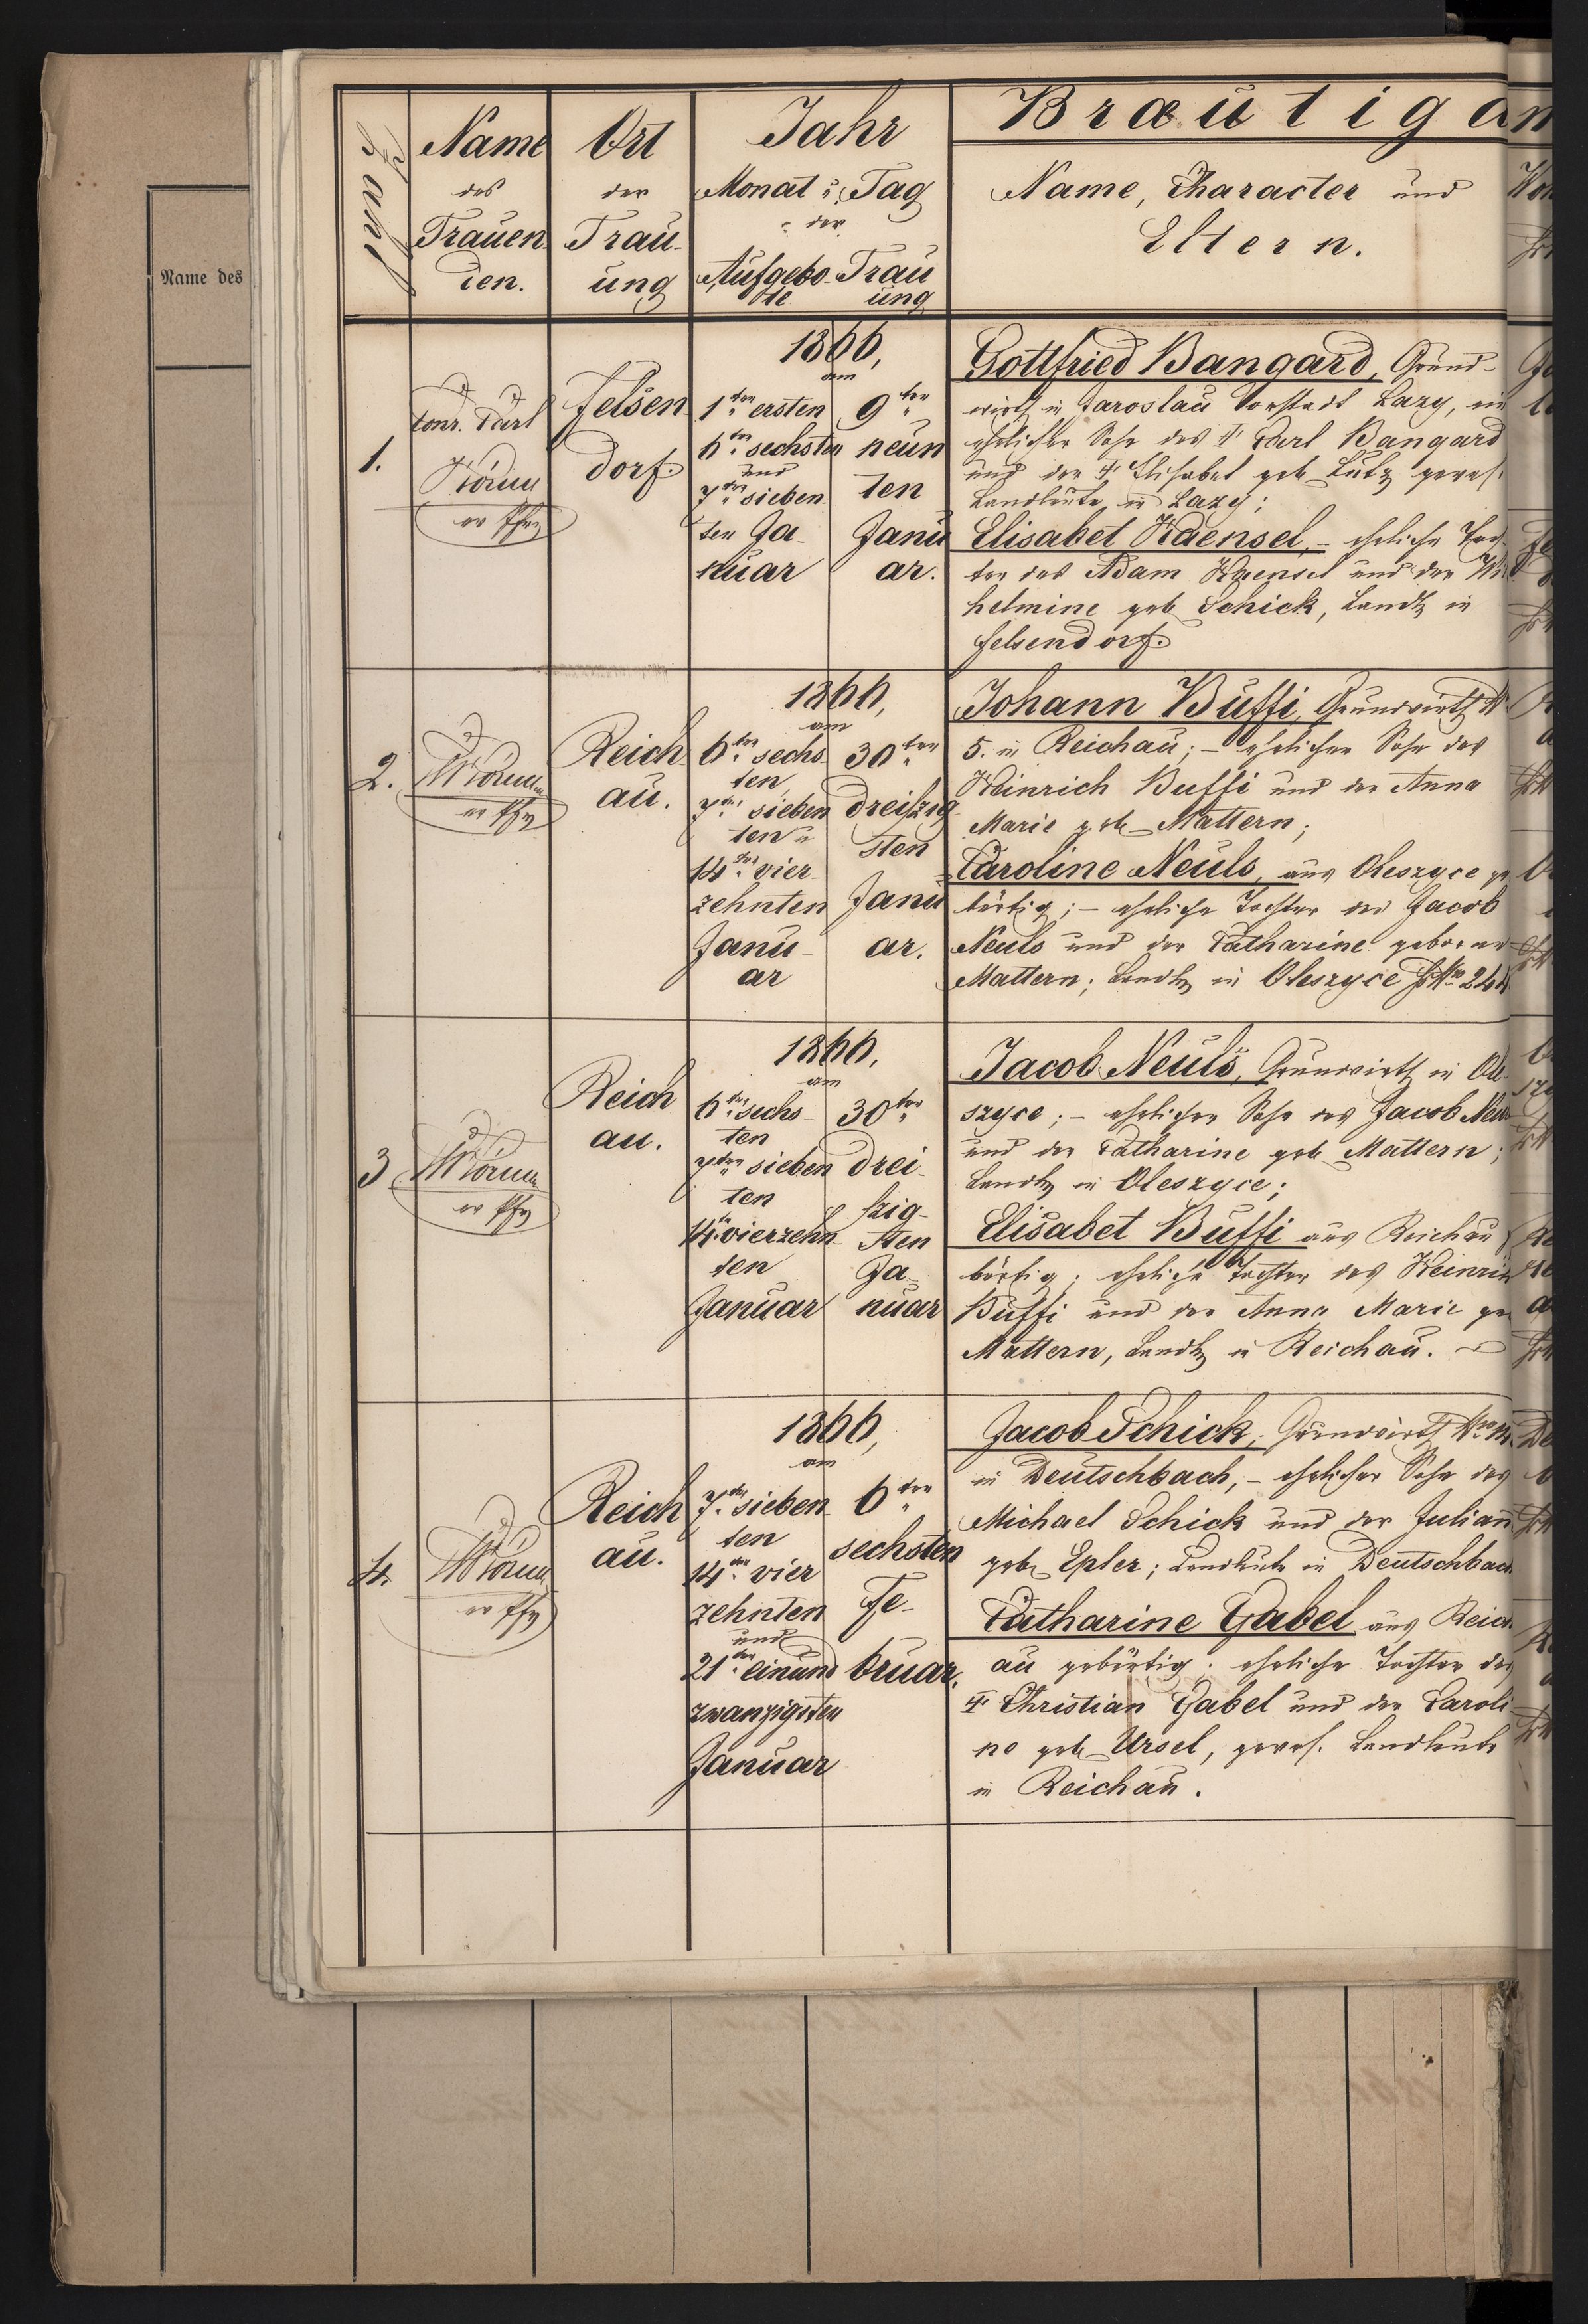 Name des
Zahl
Name
des
Trauen-
den.
Ort
der
Trau-
ung
Jahr
Monat u. Tag
der
Aufgebo-
te
Trau
ung
Bräutigam
Name, Character und
Eltern.
1.
Conr. Carl
Felsen-
dorf.
1866,
am
1ten ersten
6ten sechsten
und
7ten sieben
ten Ja-
nuar
9ten
neun
ten
Janu
ar.
Gottfried Bangard, Grund-
wirth in Jaroslau Vorstadt Lazy, ein
ehelicher Sohn des † Carl Bangard
und der † Elisabet geb. Lutz gewes.
Landleute in Lazy;
Elisabet Haensel, – eheliche Toch-
ter des Adam Haensel und der Wil
helmine geb. Schick, Landl. in
Felsendorf.
2.
Reich-
au.
1866,
am
6ten sechs-
ten
7ten sieben
ten u
14ten vier-
zehnten
Janu-
ar
30ten
dreiszig
sten
Janu
ar.
Johann Buffi, Grundwirth N
5. in Reichau; – ehelicher Sohn des
Heinrich Buffi und der Anna
Marie geb. Mattern;
Caroline Neuls, aus Oleszyce ge
bürtig; – eheliche Tochter des Jacob
Neuls und der Catharine geborene
Mattern; Landl. in Oleszyce HNo 24
3
Reich
au.
1866,
am
6ten sechs-
ten
7ten sieben
ten
14ten vierzehn-
ten
Januar
30ten
drei-
szig-
sten
Ja-
nuar
Jacob Neuls, Grundwirth in Ole-
szyce; – ehelicher Sohn des Jacob Neuls
und der Catharine geb. Mattern;
Landl. in Oleszyce;
Elisabet Buffi aus Reichau
bürtig; eheliche Tochter des Heinrich
Buffi und der Anna Marie ge
Mattern, Landl. in Reichau.
4.
Reich
au.
1866,
am
7ten sieben-
ten
14ten vier
zehnten
und
21ten einund
zwanzigsten
Januar
6ten
sechsten
Fe-
bruar.
Jacob Schick, Grundwirth No
in Deutschbach, – ehelicher Sohn des
Michael Schick und der Julian
geb. Epler; Landleute in Deutschbach
Catharine Gabel aus Reich
au gebürtig; eheliche Tochter des
† Christian Gabel und der Caroli-
ne geb. Ursel, gewes. Landleute
in Reichau.